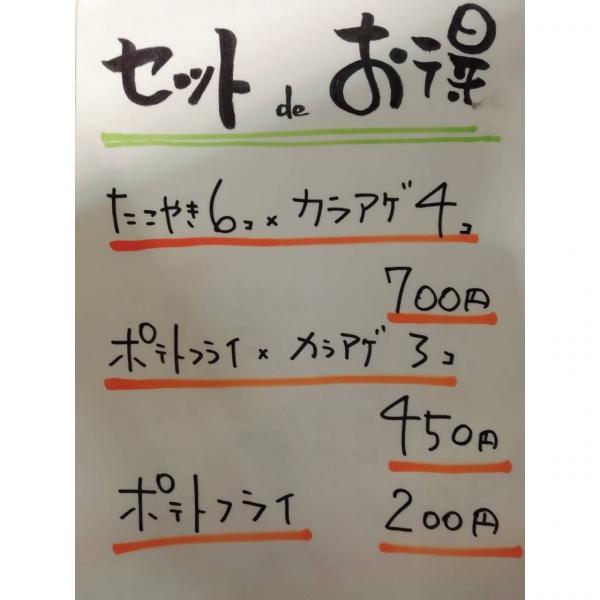 セット de お得
たこやき6コ×カラアゲ4コ
700円
ポテトフライ×カラアゲ 3コ
450円
ポテトフライ 200円